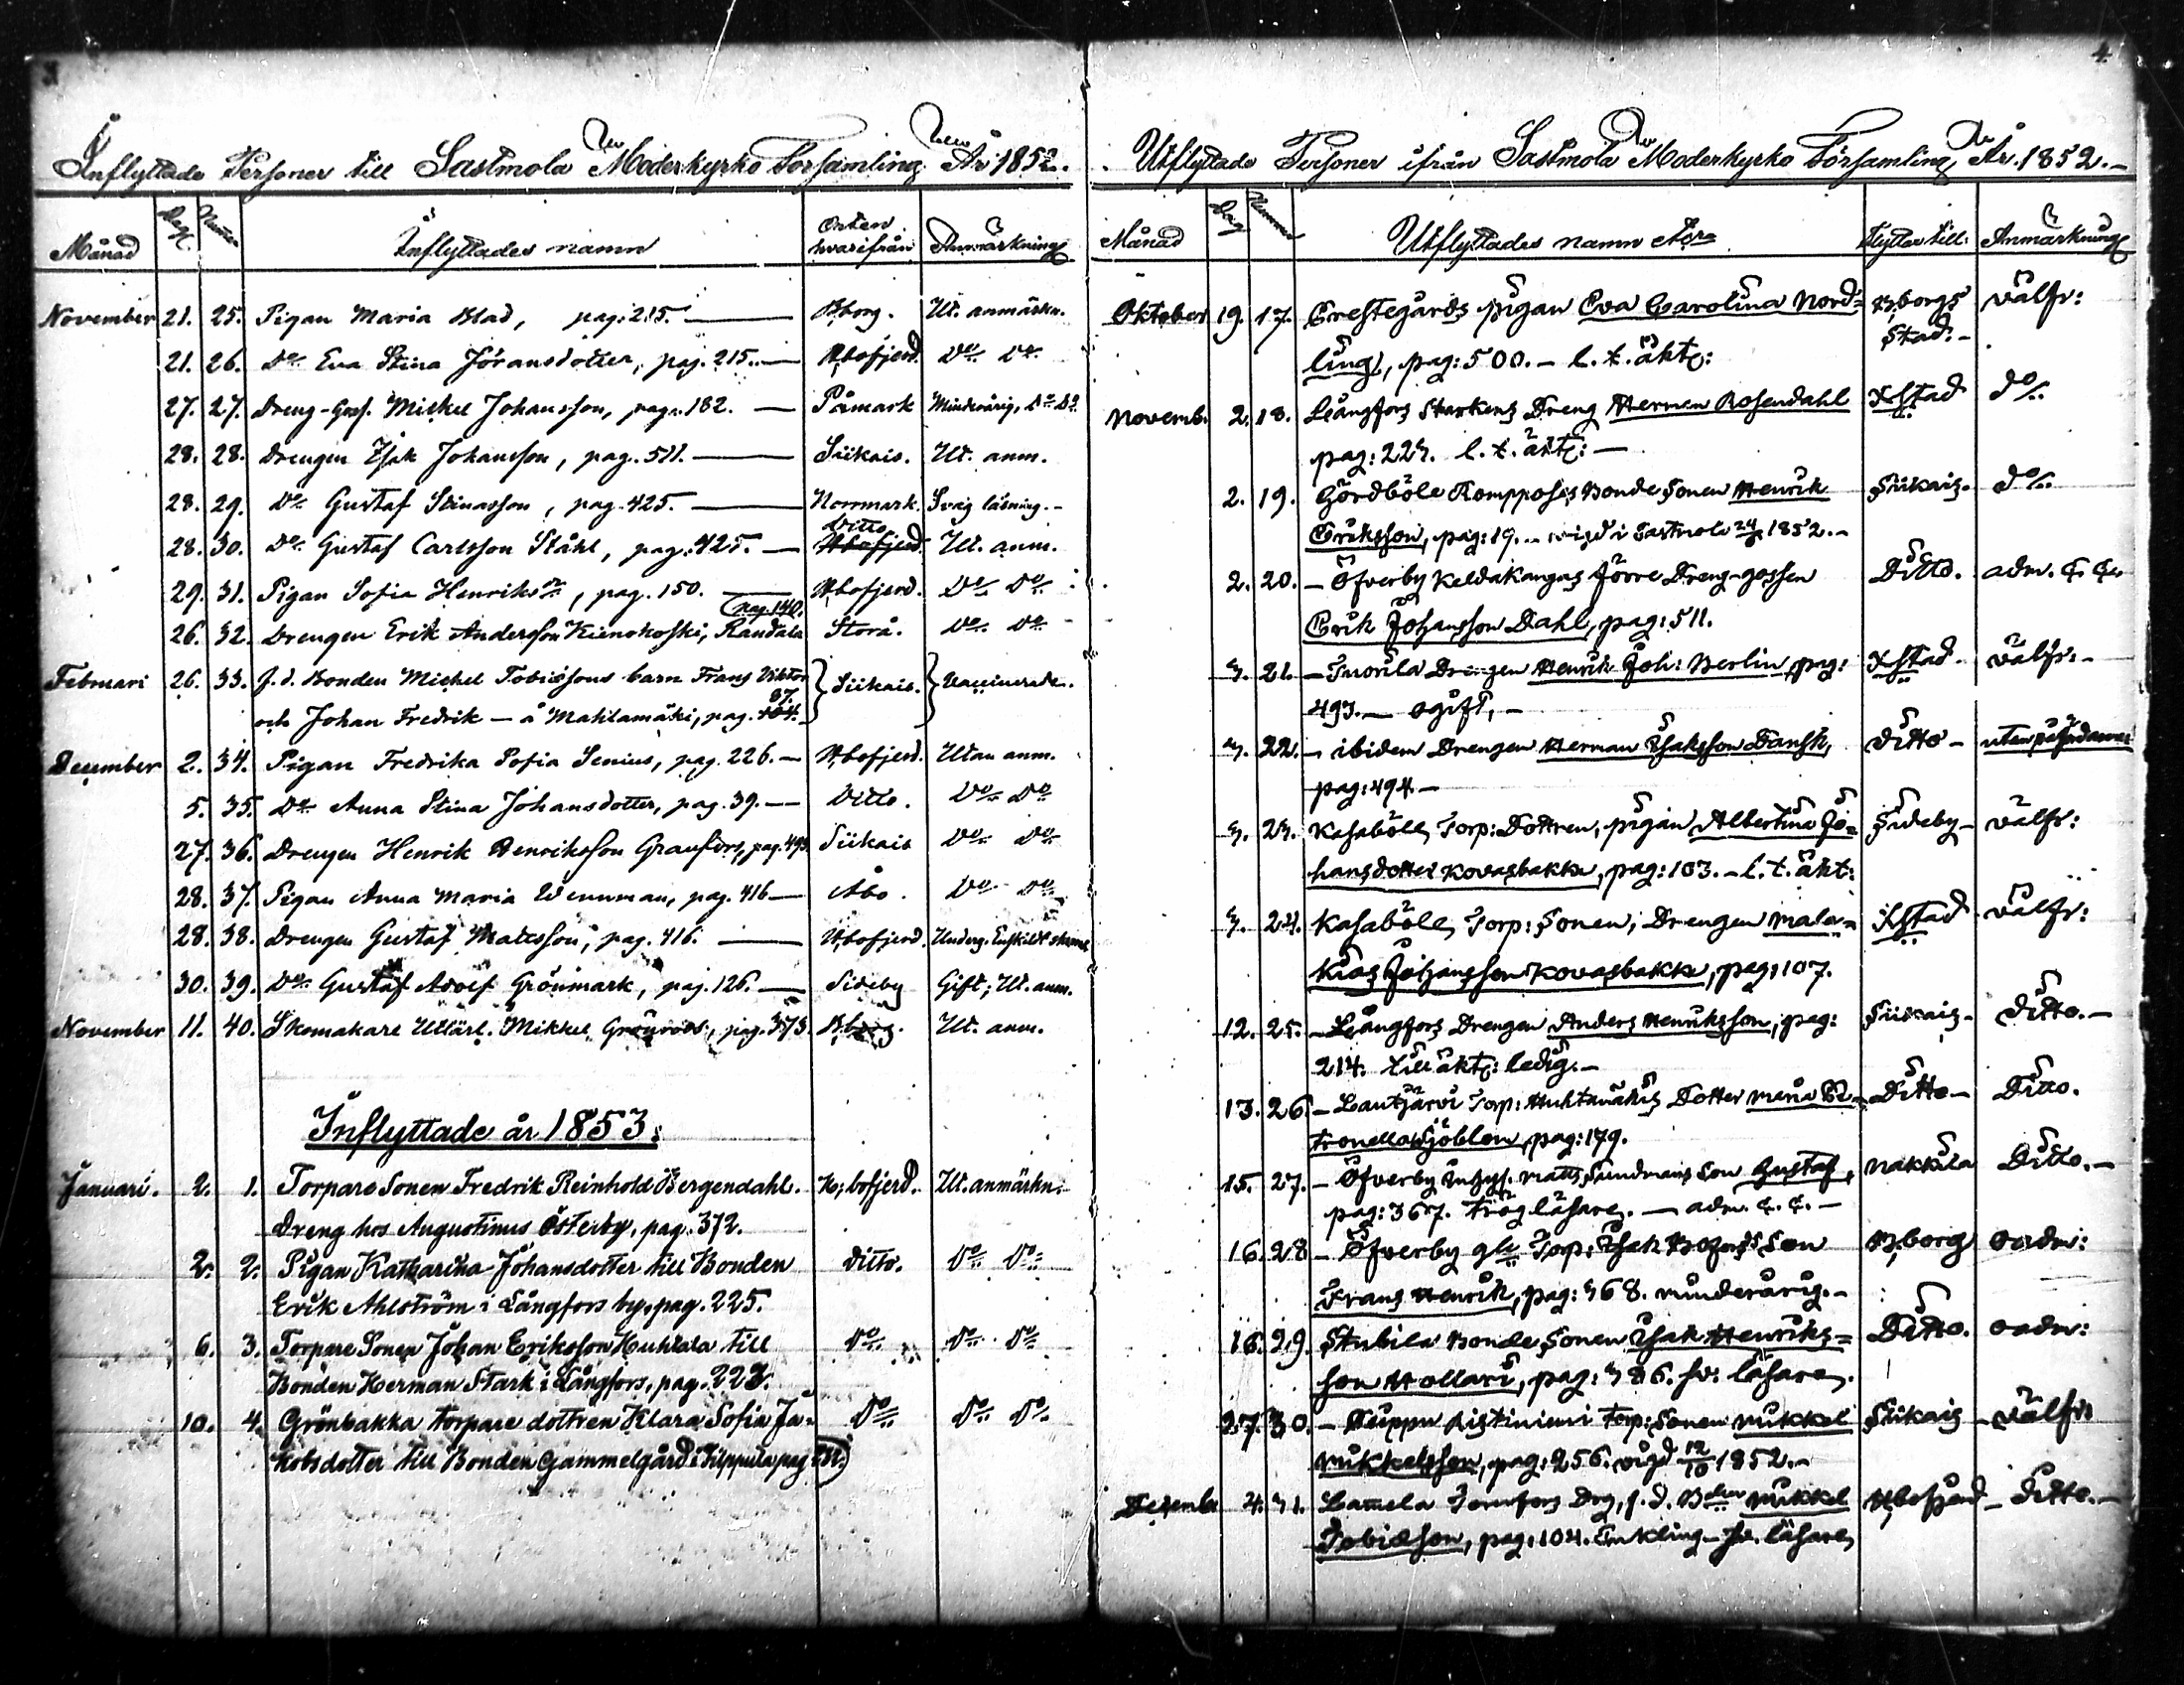 3
Inflyttade Personer till Sastmola Moderkyrko Församling År 1852.
Månad Dag Inflyttades namn Orten hvarifrån Anmärkning
November 21. 25. Pigan Maria Blad, pag. 215. — Bborg. Ut. anmärkn.
21. 26. Do Eva Stina Göransdotter, pag. 215. — Hbofjerd. Do Do
27. 27. Dreng-Goss. Mickel Johansson, pag. 182. — Påmark Minderårig, Do Do
28. 28. Drengen Isak Johansson, pag. 511. — Siikais. Ut. anm.
28. 29. Do Gustaf Stinasson, pag. 425. — Norrmark. Svag läsning. -
28. 30. Do Gustaf Carlsson Ståhl, pag. 425. — Ditto Ut. anm.
29. 31. Pigan Sofia Henriksdr, pag. 150. — Hbofjerd. Do Do
26. 32. Drengen Erik Andersson Kienokoski, Randala pag. 140. Storå. Do Do
Februari 26. 33. f. d. Bonden Mickel Tobiæsons barn Frans Viktor
och Johan Fredrik — å Matilamäki, pag. 87. Siikais. Vaccinerade.
December 2. 34. Pigan Fredrika Sofia Senius, pag. 226. — Hbofjerd. Utan anm.
5. 35. Do Anna Stina Johansdotter, pag. 39. — Ditto. Do Do
27. 36. Drengen Henrik Henriksson Granfors, pag. 493 Siikais Do Do
28. 37. Pigan Anna Maria Wennman, pag. 416 — Åbo. Do Do
28. 38. Drengen Gustaf Matsson, pag. 416. — Hbofjerd. Underg. Enskildt
30. 39. Do Gustaf Adolf Grönmark, pag. 126. — Sideby Gift; Ut. anm.
November 11. 40. Skomakare Utlärl. Mikkel Grönroos, pag. 373 Bborg. Ut. anm.
Inflyttade år 1853:
Januari. 2. 1. Torpare Sonen Fredrik Reinhold Bergendahl. H:bofjerd. Ut. anmärkn.
Dreng hos Augustinus Österby, pag. 372.
2. 2. Pigan Katharina Johansdotter till Bonden ditto. Do Do
Erik Ahlström i Långfors by, pag. 225.
6. 3. Torpare Sonen Johan Eriksson Huhtala till Do Do Do
Bonden Herman Stark i Långfors, pag. 223.
10. 4. Grönbakka torpare dottren Klara Sofia Ja- Do Do Do
kobsdotter till Bonden Gammelgård i Filppula pag
4.
Utflyttade Personer ifrån Sastmola Moderkyrko Församling, År. 1852. -
Månad Dag Utflyttades namn flyttar till: Anmärkning
Oktober 19. 17. Prestegårds pigan Eva Carolina Nord- B:borgs välfr:
ling, pag: 500. - l. t. äkt: stad. -
Novemb. 2. 18. Långfors Starkens Dreng Herman Rosendahl Xstad do
pag: 223. l. t. äkt: —
2. 19. Gördböle Rompposes Bonde Sonen Henrik Siikais. do
Eriksson, pag: 19. - vigd i Sastmola 1852. -
2. 20. — Öfverby Keldakangas Jövre Dreng-gossen Ditto. adm. &. &.
Erik Johansson Dahl, pag: 511.
3. 21. — Tuorila Drengen Henrik Joh: Berlin, pag: Xstad. välfr: -
493. — ogift, -
3. 22. — ibidem Drengen Herman Isaksson Dansk, ditto -
pag: 494 -
3. 23. Kasaböle, Torp: Dottren, pigan Albertina Jo- Sideby - välfr:
hansdotter Kovasbakka, pag: 103. - l. t. äkt:
3. 24. Kasaböle, Torp: Sonen, Drengen Mala- Xstad välfr:
kias Johansson Kovasbakka, pag: 107.
12. 25. — Långfors Drengen Anders Henriksson, pag: Siikais - Ditto. -
214. till äkt: ledig. -
13. 26. — Lautjärvi Torp: Huhtamäkis Dotter Maria Pe- Ditto - Ditto.
tronella Sjöblom, pag: 179.
15. 27. — Öfverby Inhys. Matts Sundmans Son Gustaf, Nakkila Ditto. -
pag: 367. trög läsare. — adm. &. &. -
16. 28 — Öfverby Torp: Isak Son B:borg oadm:
Frans Henrik, pag: 368. minderårig. -
16. 29. Stubila Bonde Sonen Isak Henriks- Ditto. oadm:
son Hollari, pag: 386. sv: läsare,
27. 30. — Ristiniemi Torp: Sonen Mikkel Siikais - välfr:
Mikkelsson, pag: 256. vigd 12/10 1852. -
Decemb: 4. 31. Lamela Drg, f. d. Bden Mikkel Hbofjerd - Ditto. -
Tobiæson, pag: 104. Enkling - sv. läsare,